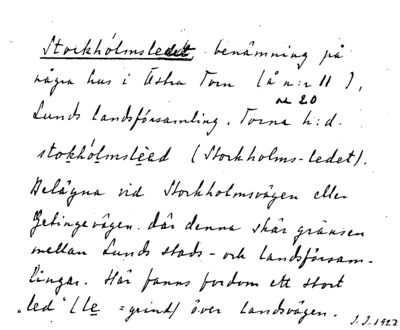 Stockhólmsledet, benämning på
några hus i Östra Torn (å n:r 11),
nr 20
Lunds landsförsamling, Torna h:d.
stokhólmslèed (Stockholms-ledet).
Belägna vid Stockholmsvägen eller
Getingevägen, där denna skär gränsen
mellan Lunds stads- och landsförsam-
lingar. Här fanns fordom ett stort
"led" (le = grind) över landsvägen.
J. J. 1922